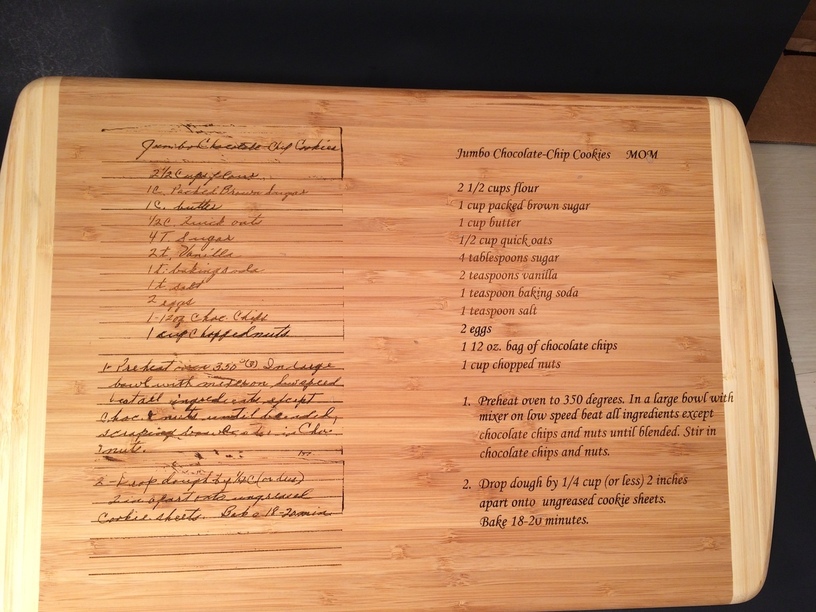 Jumbo Chocolate Chip Cookies
2 1/2 Cups flour
1 C. Packed Brown Sugar
1 C. butter
1/2 C. Quick oats
4 T. Sugar
2 t. Vanilla
1 t. baking soda
1 t. salt
2 eggs
1-12oz Choc. Chips
1 cup Chopped nuts
1- Preheat oven 350° In large
bowl with mixer on low speed
beat all ingredients except
Choc. & nuts until blended,
scraping bowl in Choc.
& nuts.
2- Drop dough by 1/4 C (or less)
2 in apart onto ungreased
Cookie sheets. Bake 18-20 min.
Jumbo Chocolate-Chip Cookies MOM
2 1/2 cups flour
1 cup packed brown sugar
1 cup butter
1/2 cup quick oats
4 tablespoons sugar
2 teaspoons vanilla
1 teaspoon baking soda
1 teaspoon salt
2 eggs
1 12 oz. bag of chocolate chips
1 cup chopped nuts
1. Preheat oven to 350 degrees. In a large bowl with
mixer on low speed beat all ingredients except
chocolate chips and nuts until blended. Stir in
chocolate chips and nuts.
2. Drop dough by 1/4 cup (or less) 2 inches
apart onto ungreased cookie sheets.
Bake 18-20 minutes.